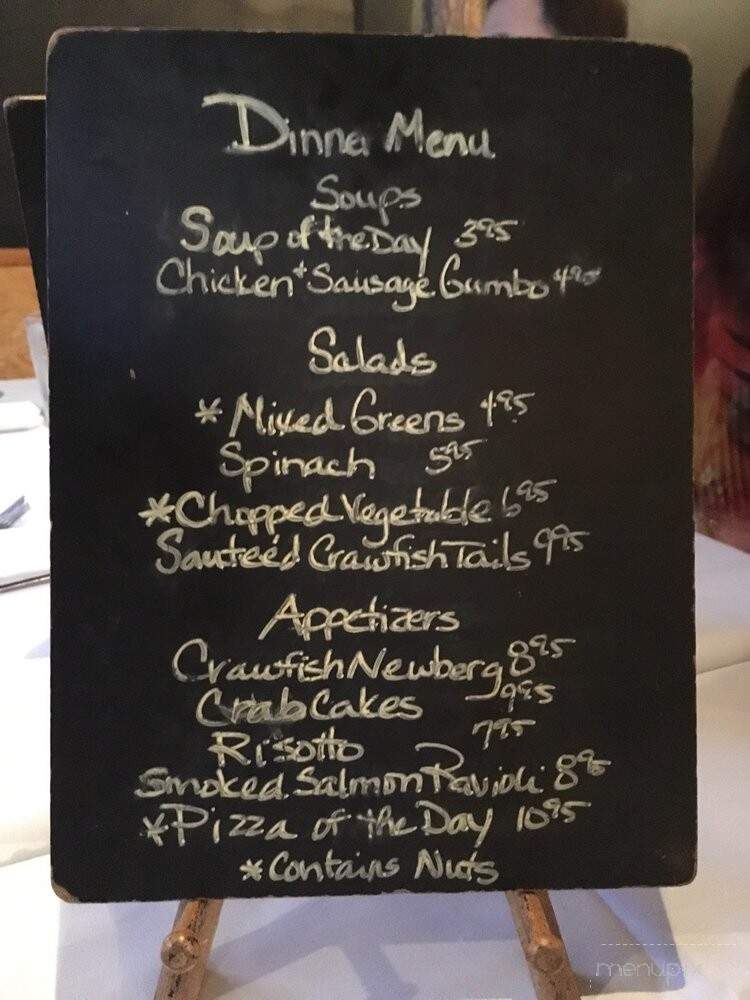 Dinner Menu
Soups
Soup of the Day 3.95
Chicken + Sausage Gumbo 4.95
Salads
* Mixed Greens 4.95
Spinach 5.95
* Chopped Vegetable 6.95
Sauteéd Crawfish Tails 9.95
Appetizers
Crawfish Newberg 8.95
Crab Cakes 9.95
Risotto 7.95
Smoked Salmon Ravioli 8.95
* Pizza of the Day 10.95
* Contains Nuts
menupix